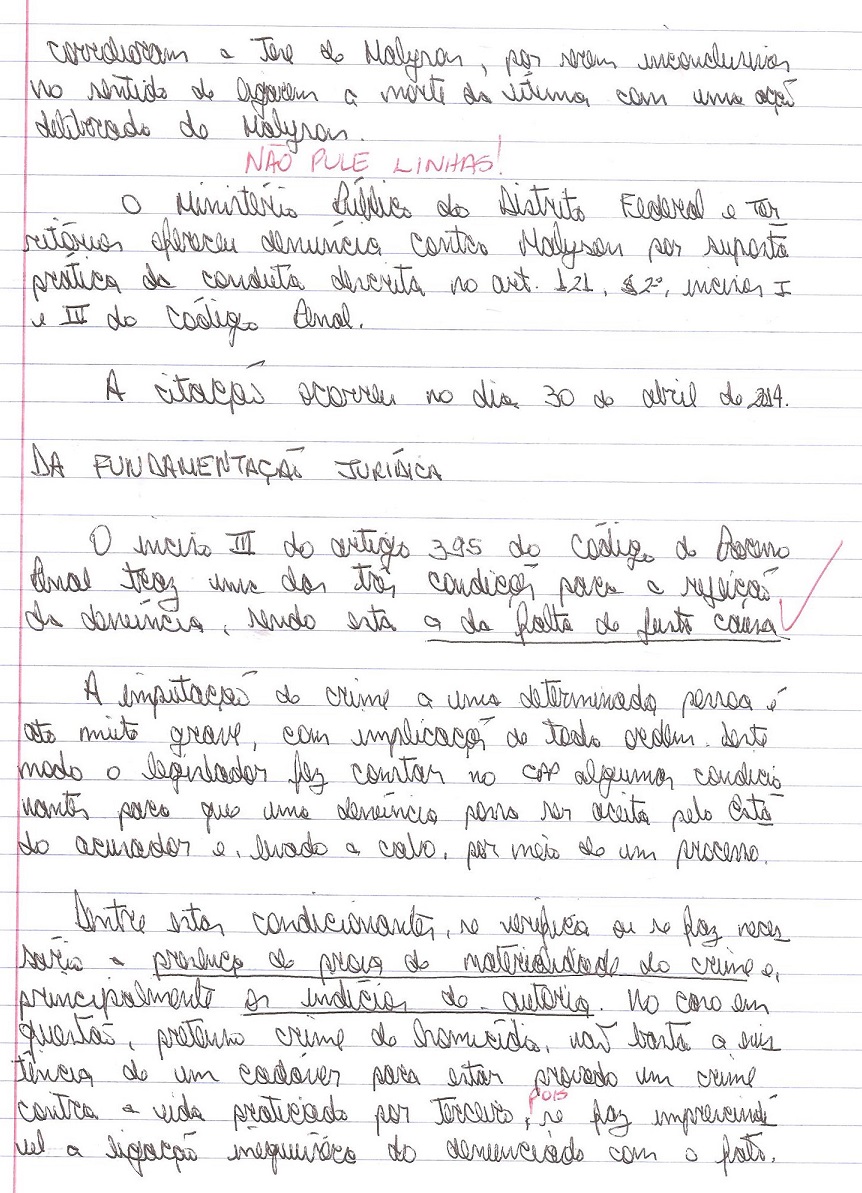 corroboram a Tese de Malyson, por serem inconclusivos
no sentido de ligarem a morte da vítima com uma ação
deliberada de Malyson.
NÃO PULE LINHAS!
O Ministério Público do Distrito Federal e Ter
ritórios ofereceu denúncia contra Malyson por suposta
prática da conduta descrita no art. 121, §2º, incisos I
e III do Código Penal.
A citação ocorreu no dia 30 de abril de 2014.
DA FUNDAMENTAÇÃO JURÍDICA
O inciso III do artigo 395 do Código de Processo
Penal traz uma das três condições para a rejeição
da denúncia, sendo esta a da falta de justa causa
A imputação de crime a uma determinada pessoa é
ato muito grave, com implicações de toda ordem. Deste
modo o legislador fez constar no CPP algumas condicio
nantes para que uma denúncia possa ser aceita pelo Esta
do acusador e, levado a cabo, por meio de um processo.
Dentre estas condicionantes, se verifica ou se faz neces
sário a presença de prova de materialidade do crime e,
principalmente os indícios de autoria. No caso em
questão, pretenso crime de homicídio, não basta a exis
tência de um cadáver para estar provado um crime
contra a vida praticado por terceiro, pois se faz imprescindí
vel a ligação inequívoca do denunciado com o fato.